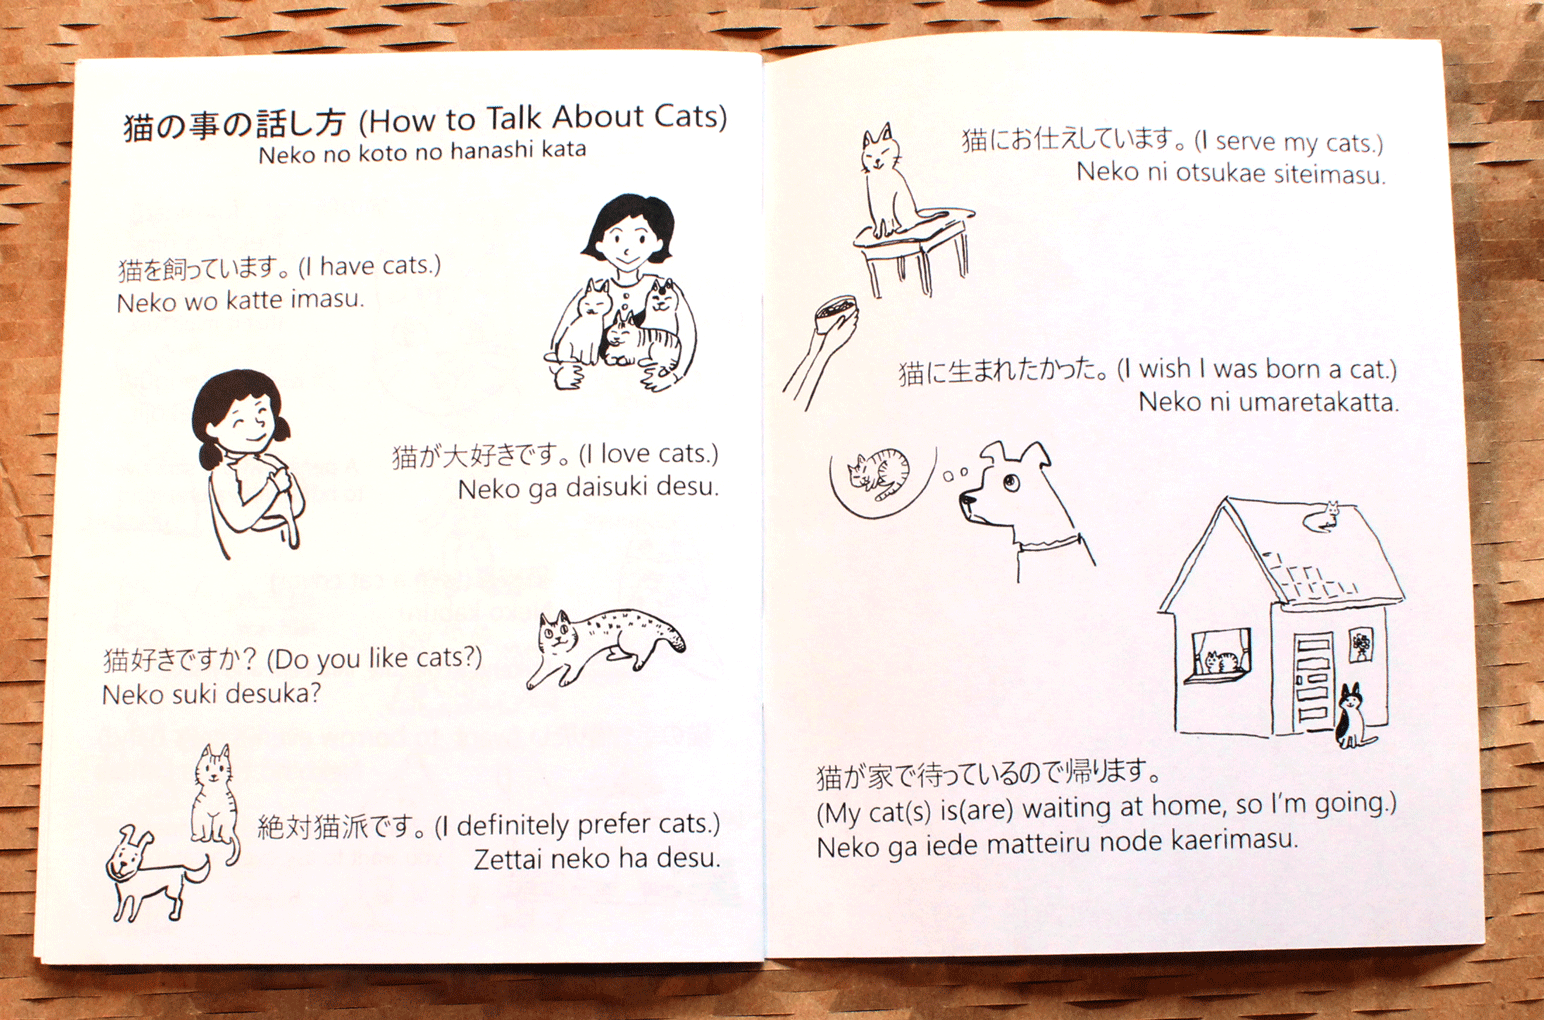 猫の事の話し方 (How to Talk About Cats)
Neko no koto no hanashi kata
猫を飼っています。(I have cats.)
Neko wo katte imasu.
猫が大好きです。(I love cats.)
Neko ga daisuki desu.
猫好きですか？(Do you like cats?)
Neko suki desuka?
絶対猫派です。(I definitely prefer cats.)
Zettai neko ha desu.
猫にお仕えしています。(I serve my cats.)
Neko ni otsukae siteimasu.
猫に生まれたかった。(I wish I was born a cat.)
Neko ni umaretakatta.
猫が家で待っているので帰ります。
(My cat(s) is(are) waiting at home, so I'm going.)
Neko ga iede matteiru node kaerimasu.